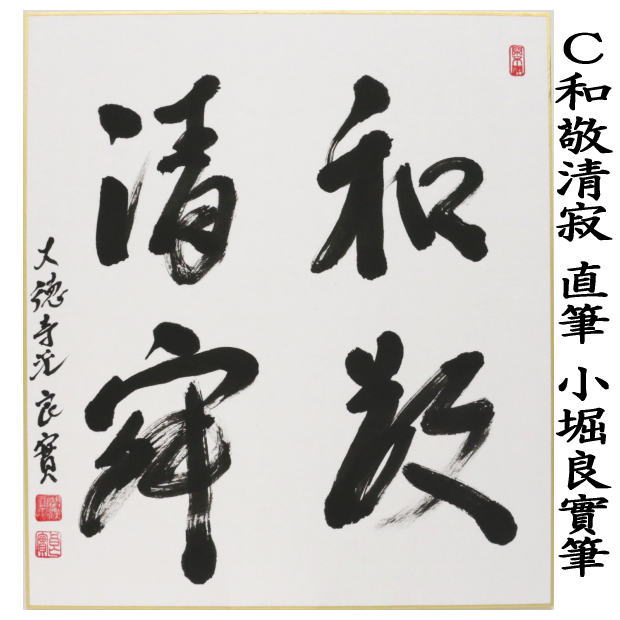 C和敬清寂 直筆 小堀良實筆
和敬
清寂
大徳寺派 良實